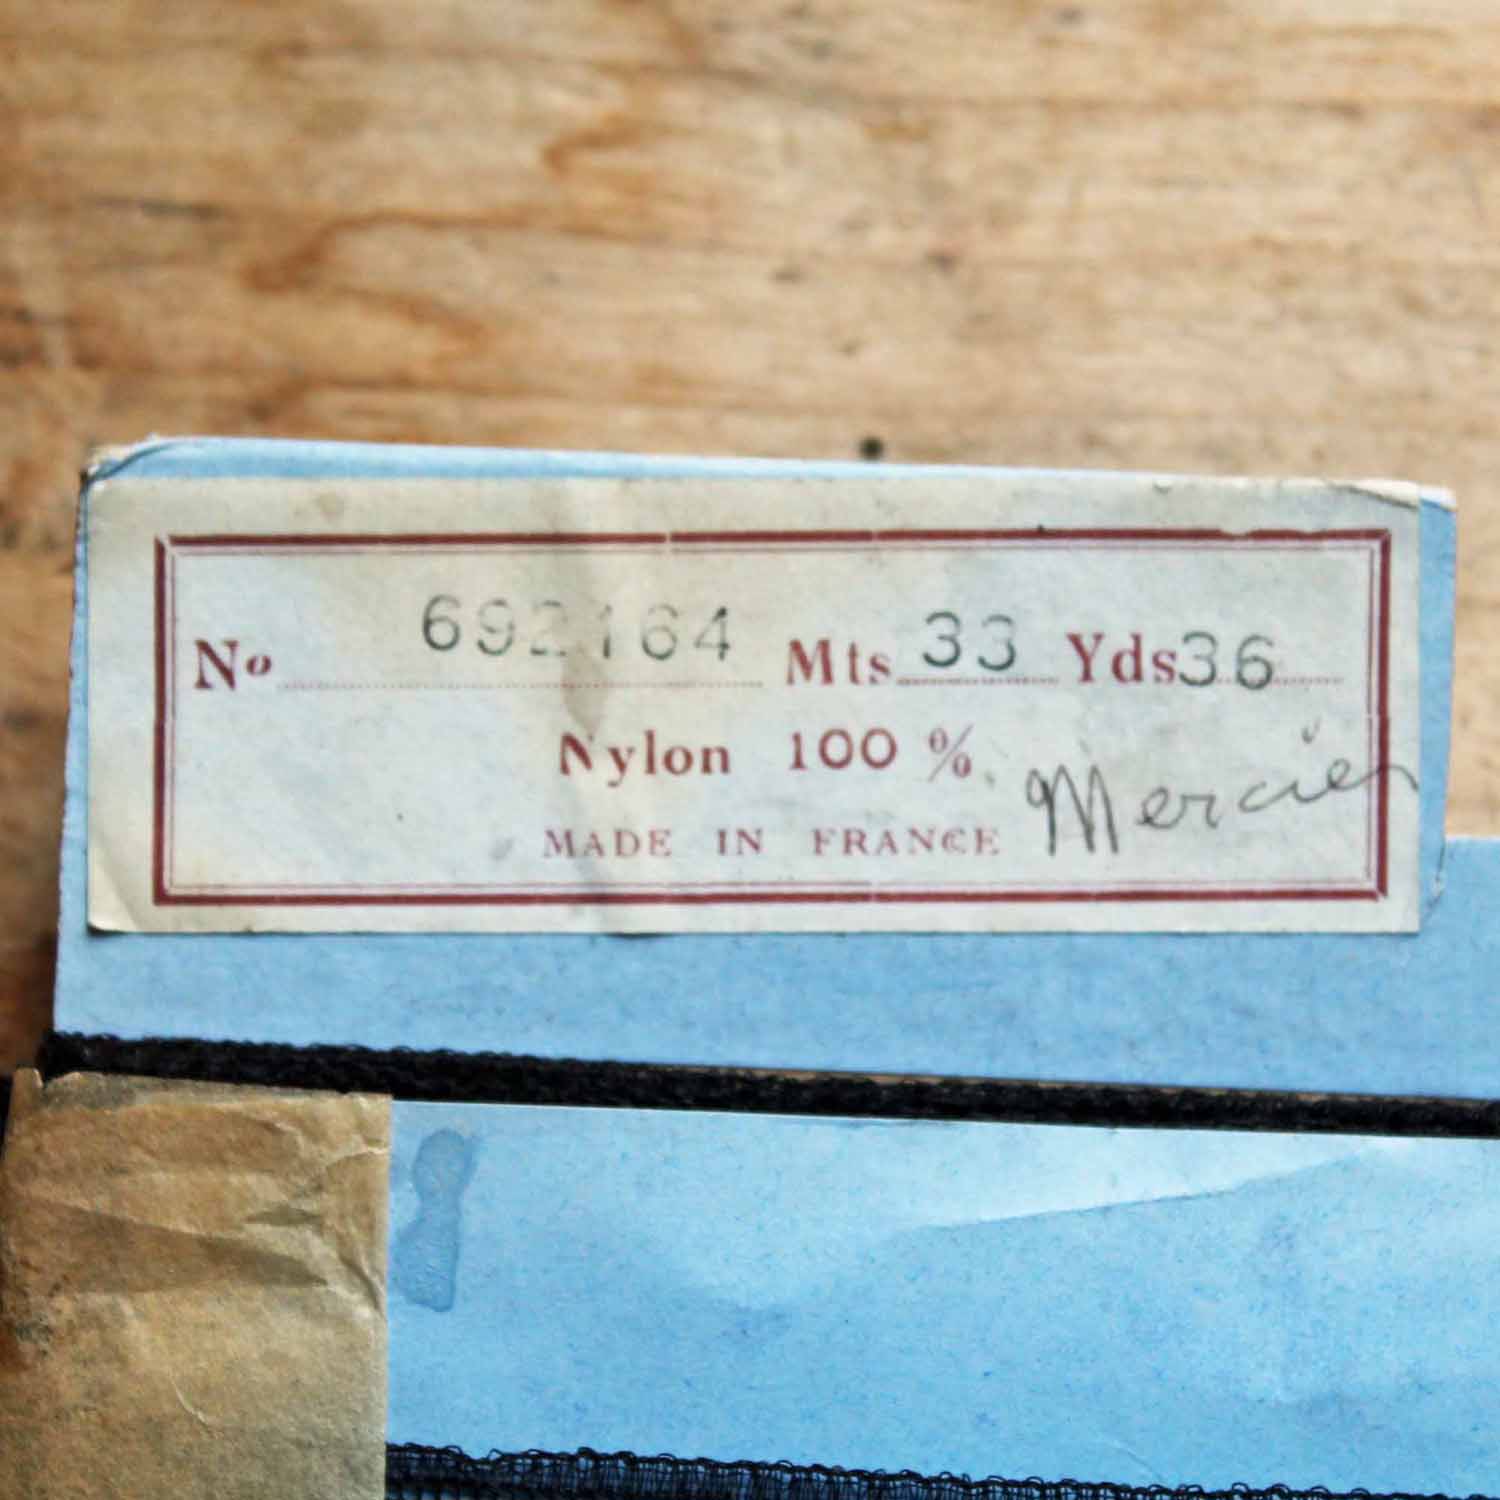 No 692164 Mts 33 Yds 36
Nylon 100 %
Mercier
MADE IN FRANCE